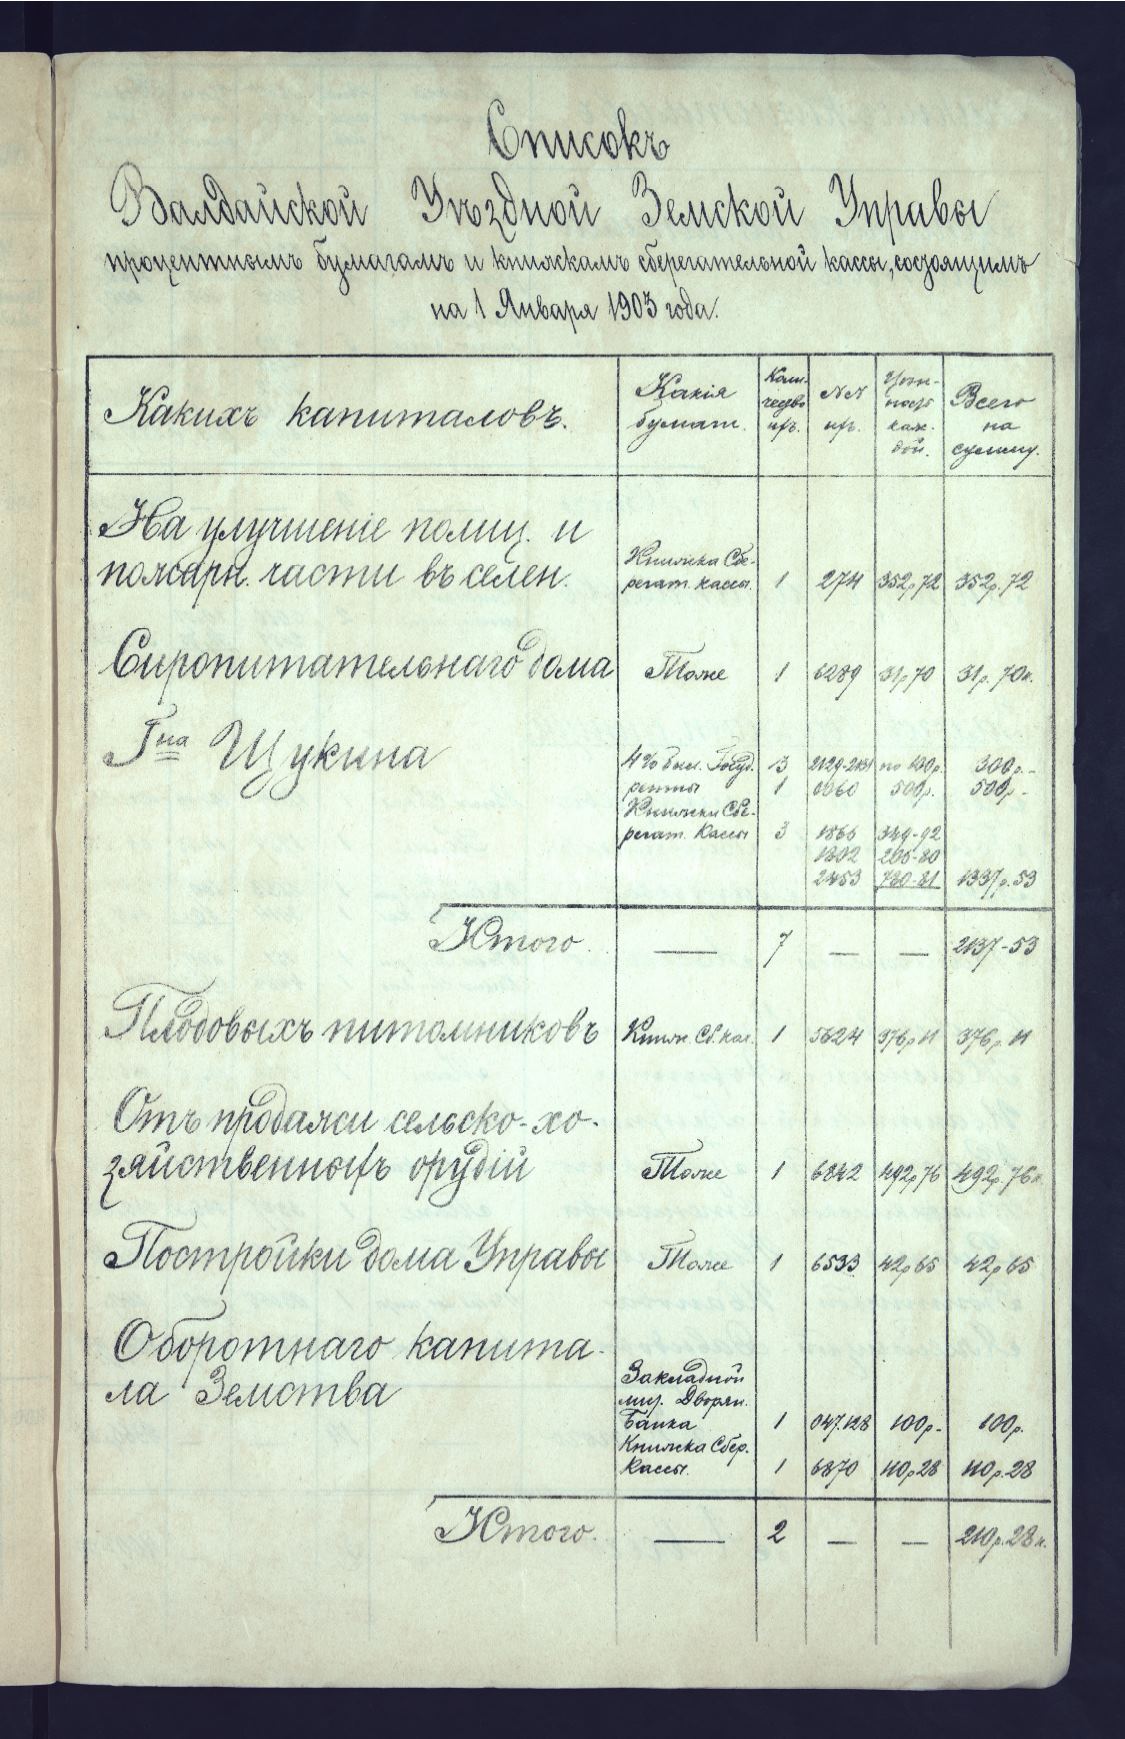 Списокъ
Валдайской Уѣздной Земской Управы
процентнымъ бумагамъ и книжкамъ сберегательной кассы, состоящимъ
на 1 Января 1903 года.
Какихъ капиталовъ.
Какія бумаги.
Коли-чество
№№
каж-дой.
Всего на сумму.
На улучшеніе полиц. и
пожарн. части въ селен.
Книжка Сбе-
регат. кассы. 1 274 352р72 352р.72
Сиропитательнаго дома Тоже 1 6289 31р70 31р.70к.
Гна Щукина
4% бил. Госуд. 3 2129-2131 по 100р. 300р.-
ренты 1 1060 500р. 500р-
Книжки Сбе-
регат. Кассы 3 1866 349-92
1302 265-80
2453 730-81 1337р.53
Итого. — 7 — — 2137-53
Плодовыхъ питомниковъ Книж. Сб. кас. 1 5624 376р11 376р.11
Отъ продажи сельско-хо-
зяйственныхъ орудій Тоже 1 6842 492р76 492р.76к.
Постройки дома Управы Тоже 1 6533 42р65 42р65
Оборотнаго капита-
ла Земства
Закладной
лис. Дворян.
Банка 1 047.128 100р- 100р.
Книжка Сбер.
Кассы. 1 6870 110р28 110р.28
Итого. — 2 — — 210р.28к.